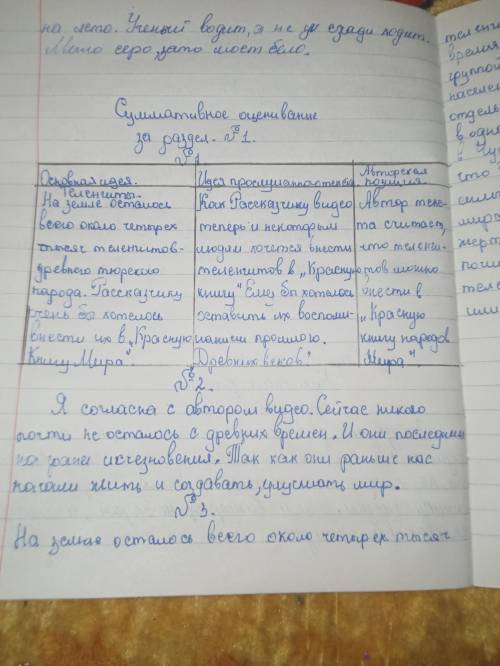 на лето. Ученый водит, а не уч сзади ходит.
Мыло серо, зато моет бело.
Суммативное оценивание
за раздел. №1.
№1
Основная идея.
Теленгиты.
На земле осталось
всего около четырех
тысяч теленгитов-
древнего тюркского
народа. Рассказчику
очень бы хотелось
внести их в "Красную
Книгу Мира".
Идея прослушанного текста
Как Рассказчику видео
теперь и некоторым
людям хочется внести
теленгитов в "Красную
книгу" Ему бы хотелось
оставить их воспоми-
нанием прошлого.
Древних веков.
Авторская
позиция.
Автор текс-
та считает,
что теленги-
тов можно
внести в
"Красную
книгу народов
Мира".
№2.
Я согласна с автором видео. Сейчас никого
почти не осталось с древних времен. И они последние
на грани исчезновения. Так как они раньше нас
начали жить и создавать, улучшать мир.
№3.
На земле осталось всего около четырех тысяч
теленги
время
группой
населен
отдель
в одно
что
силы
мира
жерт
поги
теле
или